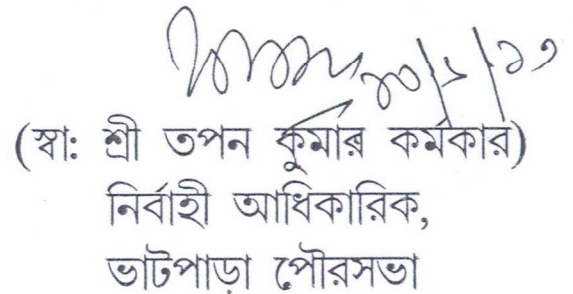 (স্বা: শ্রী তপন কুমার কর্মকার)
নির্বাহী আধিকারিক,
ভাটপাড়া পৌরসভা